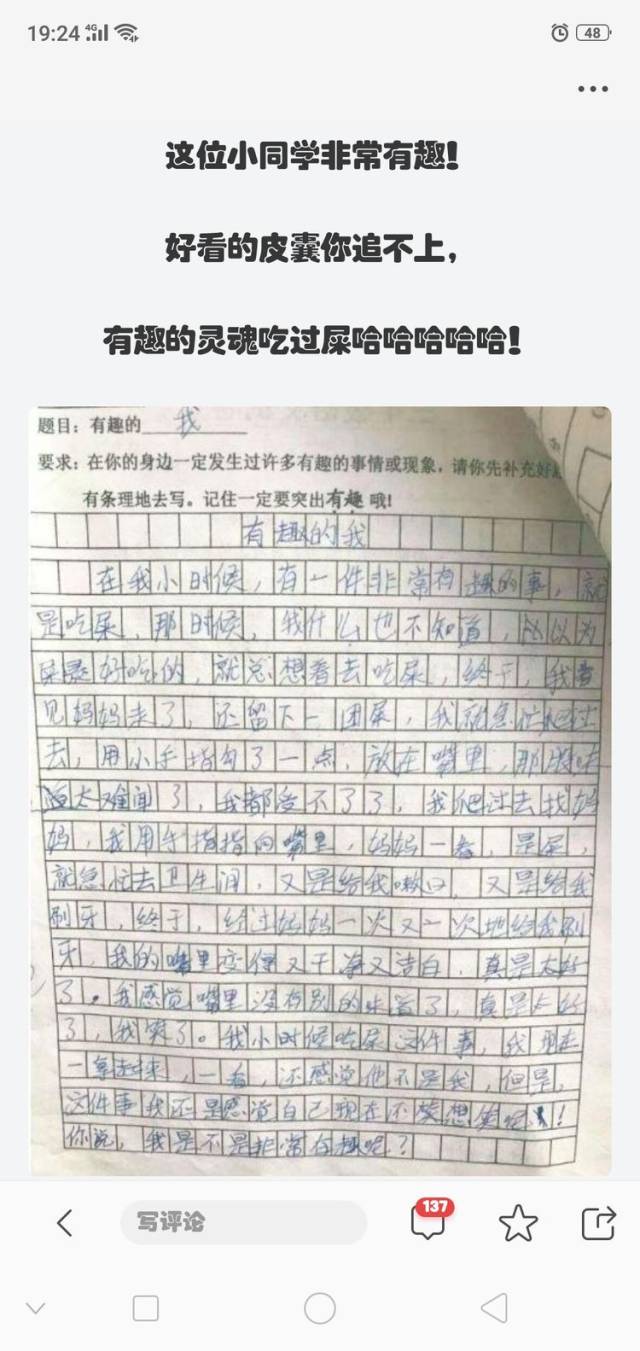 19:24
4G
48
这位小同学非常有趣!
好看的皮囊你追不上,
有趣的灵魂吃过屎哈哈哈哈哈!
题目:有趣的 我
要求:在你的身边一定发生过许多有趣的事情或现象,请你先补充好
有条理地去写。记住一定要突出有趣哦!
有趣的我
在我小时候,有一件非常有趣的事,就
是吃屎,那时候,我什么也不知道,以为
屎是好吃的,就总想着去吃屎,终于,我看
见妈妈走了,还留下一团屎,我就急忙爬过
去,用小手指勾了一点,放在嘴里,那股味
道太难闻了,我都受不了了,我爬过去找妈
妈,我用手指指向嘴里,妈妈一看,是屎,
就急忙去卫生间,又是给我嗽口,又是给我
刷牙,终于,经过妈妈一次又一次地给我刷
牙,我的嘴里变得又干净又洁白,真是太好
了。我感觉嘴里没有别的味道了,真是太好
了,我笑了。我小时候吃屎这件事,我现在
一拿起来,一看,还感觉他不是我,但是,
这件事我还是感觉自己现在不笑想笑呢!
你说,我是不是非常有趣呢?
写评论
137